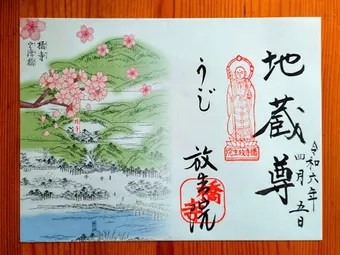 令和六年
四月五日
地蔵尊
うじ
放生院
橋寺
橋寺
宇治橋